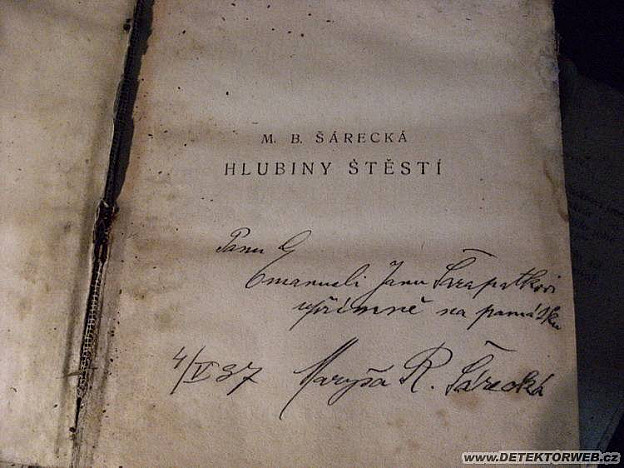 M. B. ŠÁRECKÁ
HLUBINY ŠTĚSTÍ
Panu
Emanueli Janu
upřímně na památku
4/V 37 Maryša R. Šárecká
www.DETEKTORWEB.cz